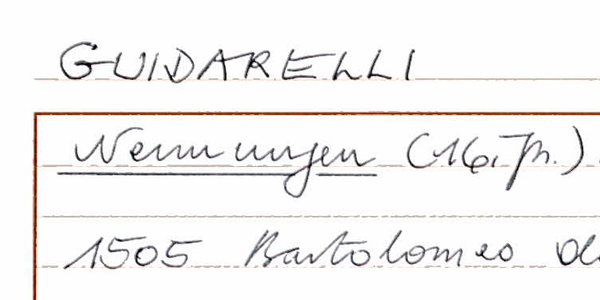 GUIDARELLI
Nennungen (16. Jh.)
1505 Bartolomeo